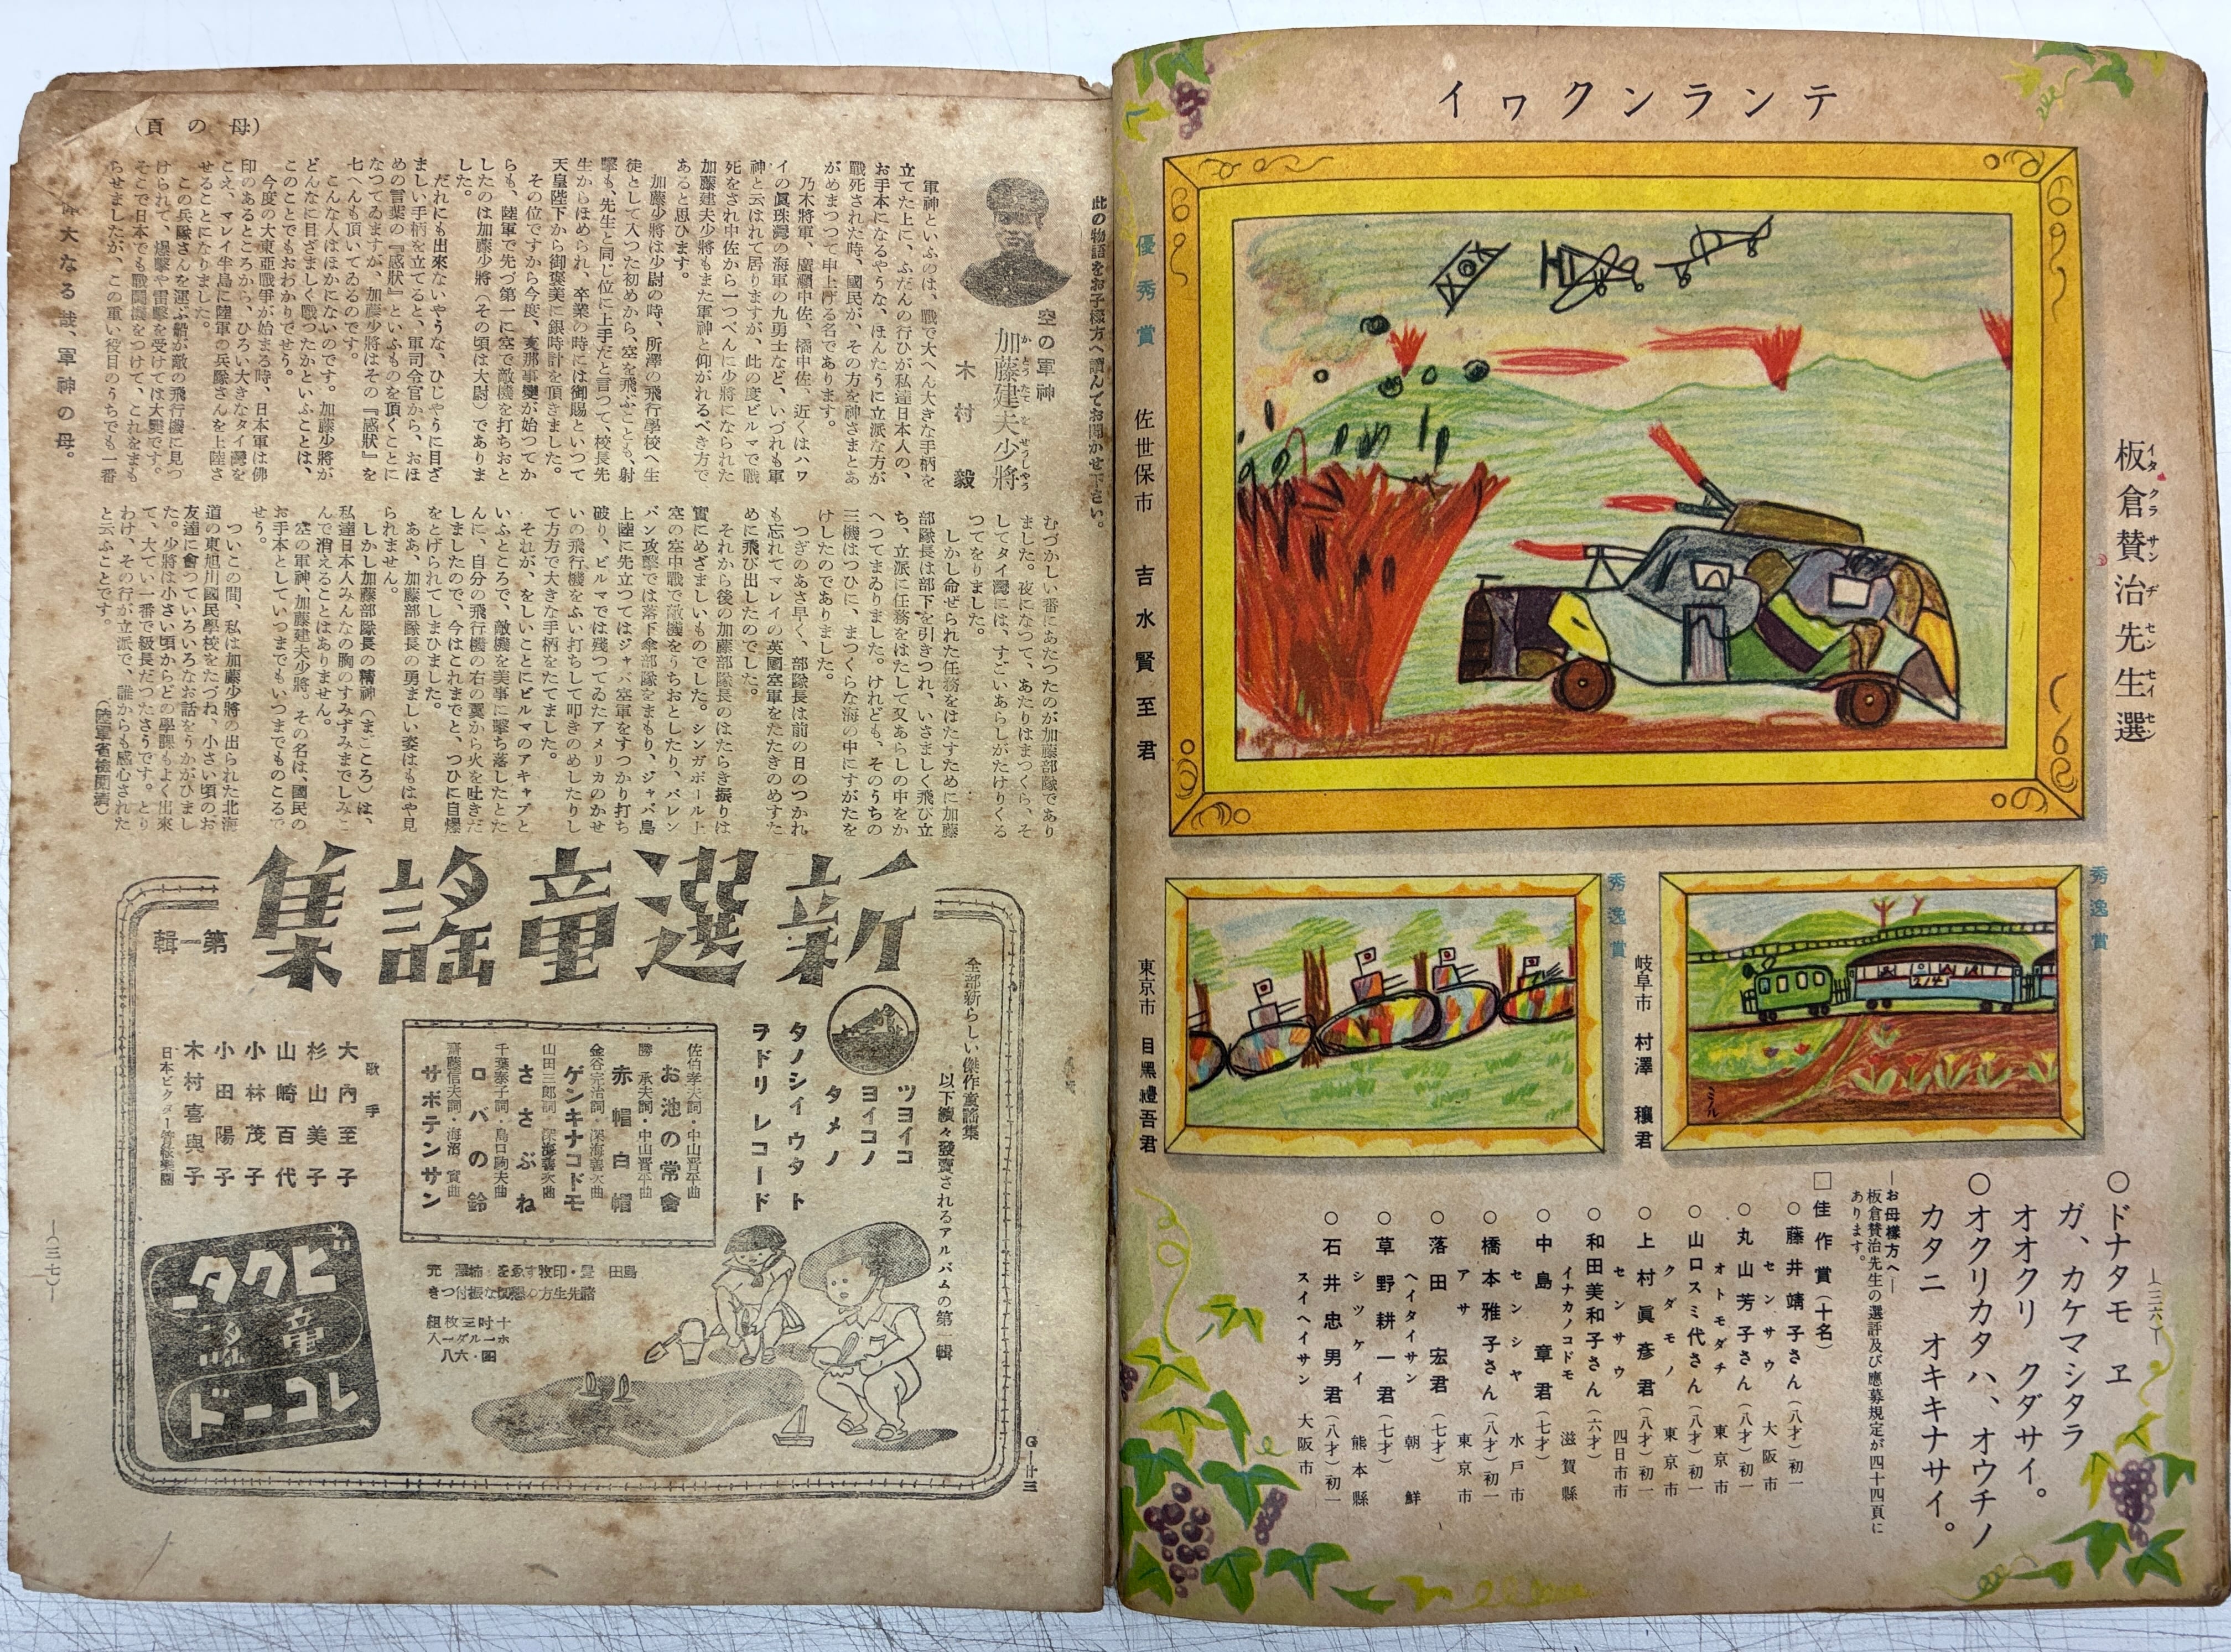 テンランクワイ
板倉賛治先生選
イタクラサンヂセンセイセン
優秀賞
佐世保市 吉水賢至君
秀逸賞
岐阜市 村澤穰君
214
ミノル
秀逸賞
東京市 目黒禮吾君
―(三六)―
○ドナタモ ヱ
ガ、カケマシタラ
オオクリ クダサイ。
○オクリカタハ、オウチノ
カタニ オキキナサイ。
―お母樣方へ―
板倉賛治先生の選評及び應募規定が四十四頁に
あります。
□佳作賞(十名)
○藤井靖子さん(八才)初一
センサウ 大阪市
○丸山芳子さん(八才)初一
オトモダチ 東京市
○山口スミ代さん(八才)初一
クダモノ 東京市
○上村眞彥君(八才)初一
センサウ 四日市市
○和田美和子さん(六才)
イナカノコドモ 滋賀縣
○中島章君(七才)
センシヤ 水戸市
○橋本雅子さん(八才)初一
アサ 東京市
○落田宏君(七才)
ヘイタイサン 朝鮮
○草野耕一君(七才)
シツケイ 熊本縣
○石井忠男君(八才)初一
スイヘイサン 大阪市
(母の頁)
此の物語をお子樣方へ讀んでお聞かせ下さい。
空の軍神
加藤建夫少將
かとうたてをせうしやう
木村毅
軍神といふのは、戰で大へん大きな手柄を
立てた上に、ふだんの行ひが私達日本人の、
お手本になるやうな、ほんたうに立派な方が
戰死された時、國民が、その方を神さまとあ
がめまつつて申上げる名であります。
乃木將軍、廣瀨中佐、橘中佐、近くはハワ
イの眞珠灣の海軍の九勇士など、いづれも軍
神と云はれて居りますが、此の度ビルマで戰
死をされ中佐から一つぺんに少將になられた
加藤建夫少將もまた軍神と仰がれるべき方で
あると思ひます。
加藤少將は少尉の時、所澤の飛行學校へ生
徒として入つた初めから、空を飛ぶことも、射
擊も、先生と同じ位に上手だと言つて、校長先
生からほめられ、卒業の時には御賜といつて
天皇陛下から御褒美に銀時計を頂きました。
その位ですから今度、支那事變が始つてか
らも、陸軍で先づ第一に空で敵機を打ちおと
したのは加藤少將(その頃は大尉)でありま
した。
だれにも出來ないやうな、ひじやうに目ざ
ましい手柄を立てると、軍司令官から、おほ
めの言葉の『感狀』といふものを頂くことに
なつてゐますが、加藤少將はその『感狀』を
七へんも頂いてゐるのです。
こんな人はほかにないのです。加藤少將が
どんなに目ざましく戰つたかといふことは、
このことでもおわかりでせう。
今度の大東亞戰爭が始まる時、日本軍は佛
印のあるところから、ひろい大きなタイ灣を
こえ、マレイ半島に陸軍の兵隊さんを上陸さ
せることになりました。
この兵隊さんを運ぶ船が敵の飛行機に見つ
けられて、爆擊や雷擊を受けては大變です。
そこで日本でも戰鬪機をつけて、これをまも
らせましたが、この重い役目のうちでも一番
大なる哉、軍神の母。
むづかしい番にあたつたのが加藤部隊であり
ました。夜になつて、あたりはまつくら、そ
してタイ灣には、すごいあらしがたけりくる
つてをりました。
しかし命ぜられた任務をはたすために加藤
部隊長は部下を引きつれ、いさましく飛び立
ち、立派に任務をはたして又あらしの中をか
へつてまゐりました。けれども、そのうちの
三機はつひに、まつくらな海の中にすがたを
けしたのでありました。
つぎのあさ早く、部隊長は前の日のつかれ
も忘れてマレイの英國空軍をたたきのめすた
めに飛び出したのでした。
それから後の加藤部隊長のはたらき振りは
實にめざましいものでした。シンガポール上
空の空中戰で敵機をうちおとしたり、パレン
バン攻擊では落下傘部隊をまもり、ジャバ島
上陸に先立つてはジャバ空軍をすつかり打ち
破り、ビルマでは殘つてゐたアメリカのかせ
いの飛行機をふい打ちして叩きのめしたりし
て方方で大きな手柄をたてました。
それが、をしいことにビルマのアキャブと
いふところで、敵機を美事に擊ち落したとた
んに、自分の飛行機の右の翼から火を吐きだ
しましたので、今はこれまでと、つひに自爆
をとげられてしまひました。
ああ、加藤部隊長の勇ましい姿はもはや見
られません。
しかし加藤部隊長の精神(まごころ)は、
私達日本人みんなの胸のすみずみまでしみこ
んで消えることはありません。
空の軍神、加藤建夫少將。その名は、國民の
お手本としていつまでもいつまでものこるで
せう。
ついこの間、私は加藤少將の出られた北海
道の東旭川國民學校をたづね、小さい頃のお
友達に會つていろいろなお話をうかがひまし
た。少將は小さい頃からどの學課もよく出來
て、大てい一番で級長だつたさうです。とり
わけ、その行が立派で、誰からも感心された
と云ふことです。
(陸軍省檢閱濟)
新選童謠集
第一輯
全部新らしい傑作童謠集
以下續々發賣されるアルバムの第一輯
ツヨイコ
ヨイコノ
タメノ
タノシイウタト
ヲドリレコード
佐伯孝夫詞・中山晋平曲
お池の常會
勝承夫詞・中山晋平曲
赤帽白帽
金谷完治詞・深海善次曲
ゲンキナコドモ
山田三郎詞・深海善次曲
ささぶね
千葉泰子詞・島口駒夫曲
ロバの鈴
齋藤信夫詞・海沼實曲
サボテンサン
歌手
大內至子
杉山美子
山崎百代
小林茂子
小田陽子
木村喜與子
日本ビクター管絃樂團
諸先生方の懇切な振付つき
十吋三枚組
ホールダー入
八六・圓
ビクター
童謠
レコード
G―廿三
―(三七)―